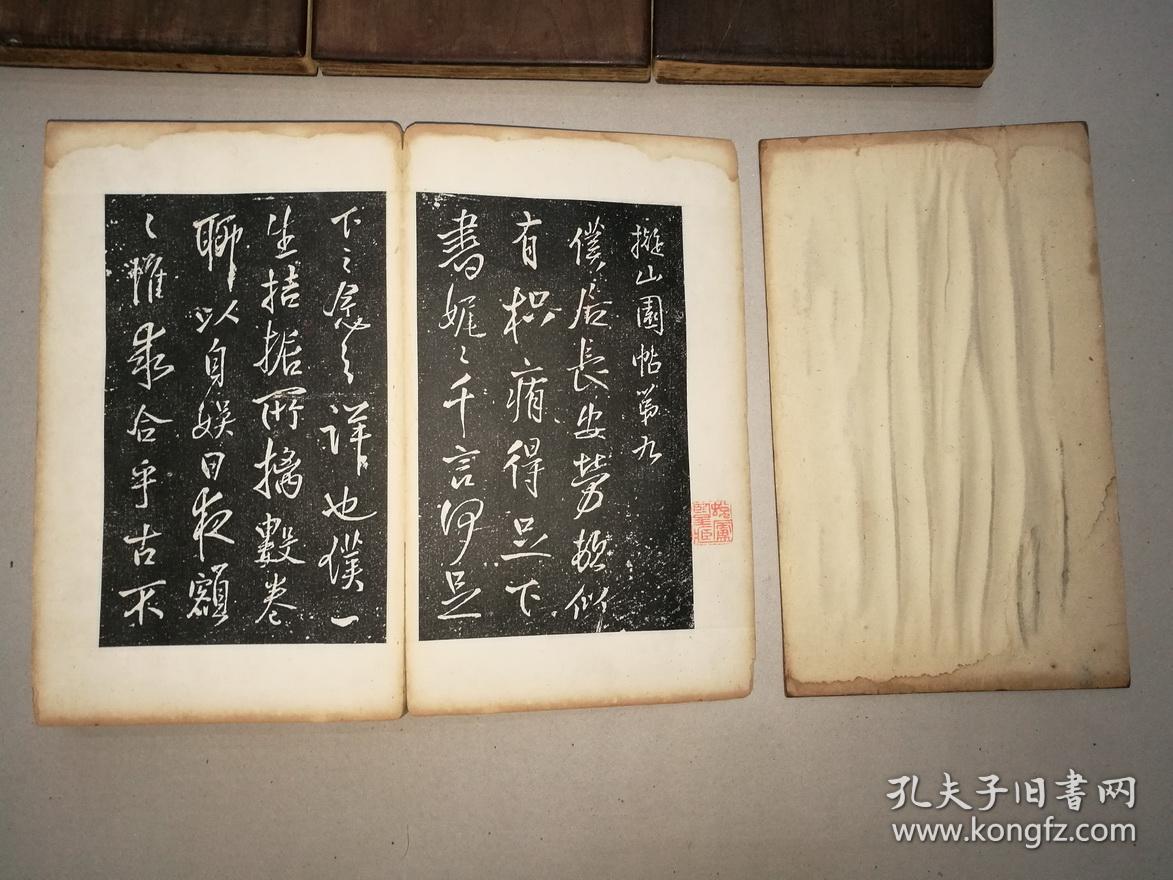 擬山園帖第九
僕居長安勞頓似
有枳痏得足下
書娓〻千言何足
下之念之詳也僕一
生拮据所摛數卷
聊以自娛日夜額
〻惟求合乎古不
孔夫子旧书网
www.kongfz.com